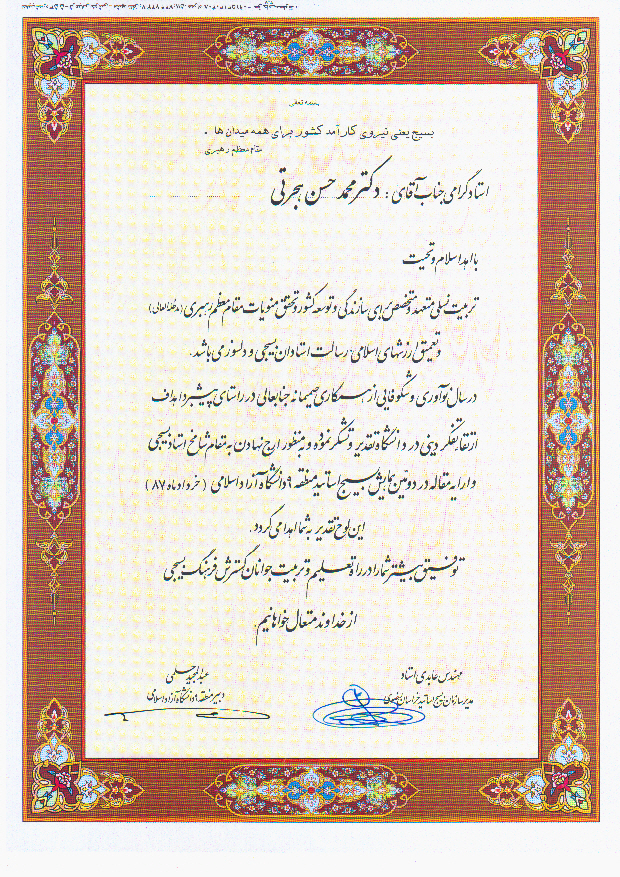 بسمه تعالی
بسیج یعنی نیروی کارآمد کشور برای همه میدان ها .
مقام معظم رهبری
استاد گرامی جناب آقای : دکتر محمد حسن هجرتی
با اهداء سلام و تحیت
تربیت نسلی متعهد و متخصص برای سازندگی و توسعه کشور و تحقق منویات مقام معظم رهبری (مدظله العالی)
و تعمیق ارزشهای اسلامی رسالت استادان بسیجی و دلسوز می باشد .
در سال نوآوری و شکوفایی از همکاری صمیمانه جنابعالی در راستای پیشبرد اهداف
ارتقاء تفکر دینی در دانشگاه تقدیر و تشکر نموده و به منظور ارج نهادن به مقام شامخ استاد بسیجی
و ارایه مقاله در دومین همایش بسیج اساتید منطقه ۹ دانشگاه آزاد اسلامی ( خرداد ماه ۸۷ )
این لوح تقدیر به شما اهدا می گردد .
توفیق بیشتر شما را در راه تعلیم و تربیت جوانان و گسترش فرهنگ بسیجی
از خداوند متعال خواهانیم .
مهندس عابدی استاد
مدیر سازمان بسیج اساتید خراسان رضوی
عبدالمجید حلمی
دبیر منطقه ۹ دانشگاه آزاد اسلامی